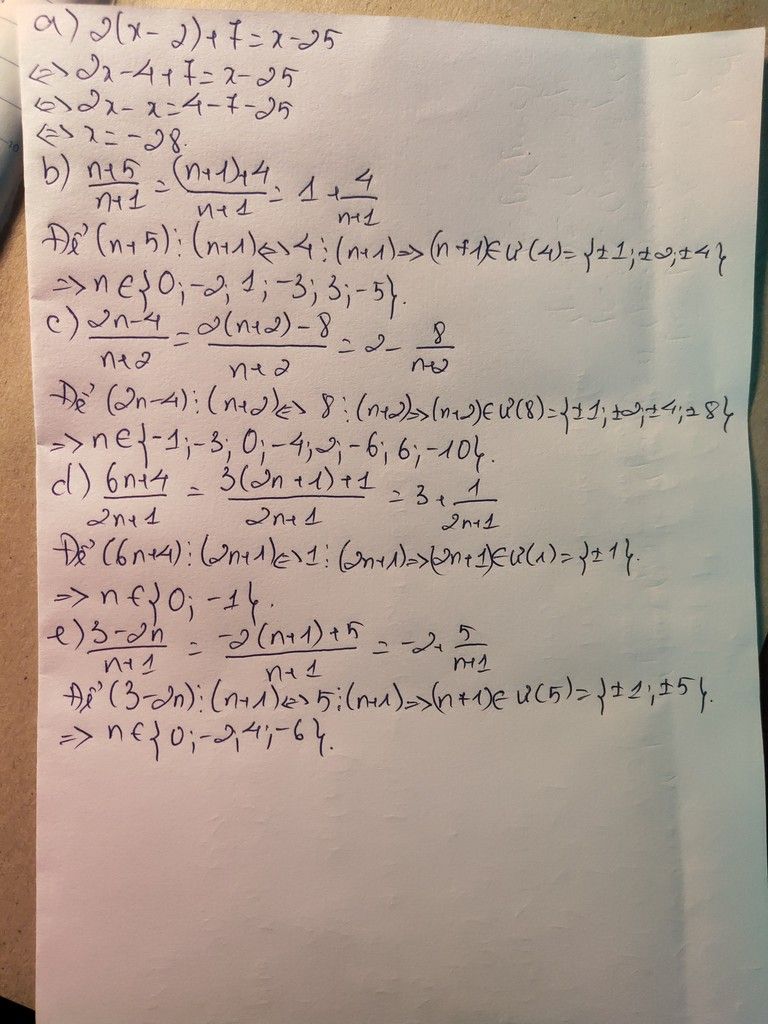 a) 2(x-2)+7=x-25
<=> 2x-4+7=x-25
<=> 2x-x=4-7-25
<=> x=-28.
b) \frac{n+5}{n+1} = \frac{(n+1)+4}{n+1} = 1 + \frac{4}{n+1}
Để (n+5)⋮(n+1)<=>4⋮(n+1)=>(n+1)∈Ư(4)={±1;±2;±4}
=> n∈{0;-2;1;-3;3;-5}.
c) \frac{2n-4}{n+2} = \frac{2(n+2)-8}{n+2} = 2 - \frac{8}{n+2}
Để (2n-4)⋮(n+2)<=>8⋮(n+2)=>(n+2)∈Ư(8)={±1;±2;±4;±8}
=> n∈{-1;-3;0;-4;2;-6;6;-10}.
d) \frac{6n+4}{2n+1} = \frac{3(2n+1)+1}{2n+1} = 3 + \frac{1}{2n+1}
Để (6n+4)⋮(2n+1)<=>1⋮(2n+1)=>(2n+1)∈Ư(1)={±1}.
=> n∈{0;-1}.
e) \frac{3-2n}{n+1} = \frac{-2(n+1)+5}{n+1} = -2 + \frac{5}{n+1}
Để (3-2n)⋮(n+1)<=>5⋮(n+1)=>(n+1)∈Ư(5)={±1;±5}.
=> n∈{0;-2;4;-6}.